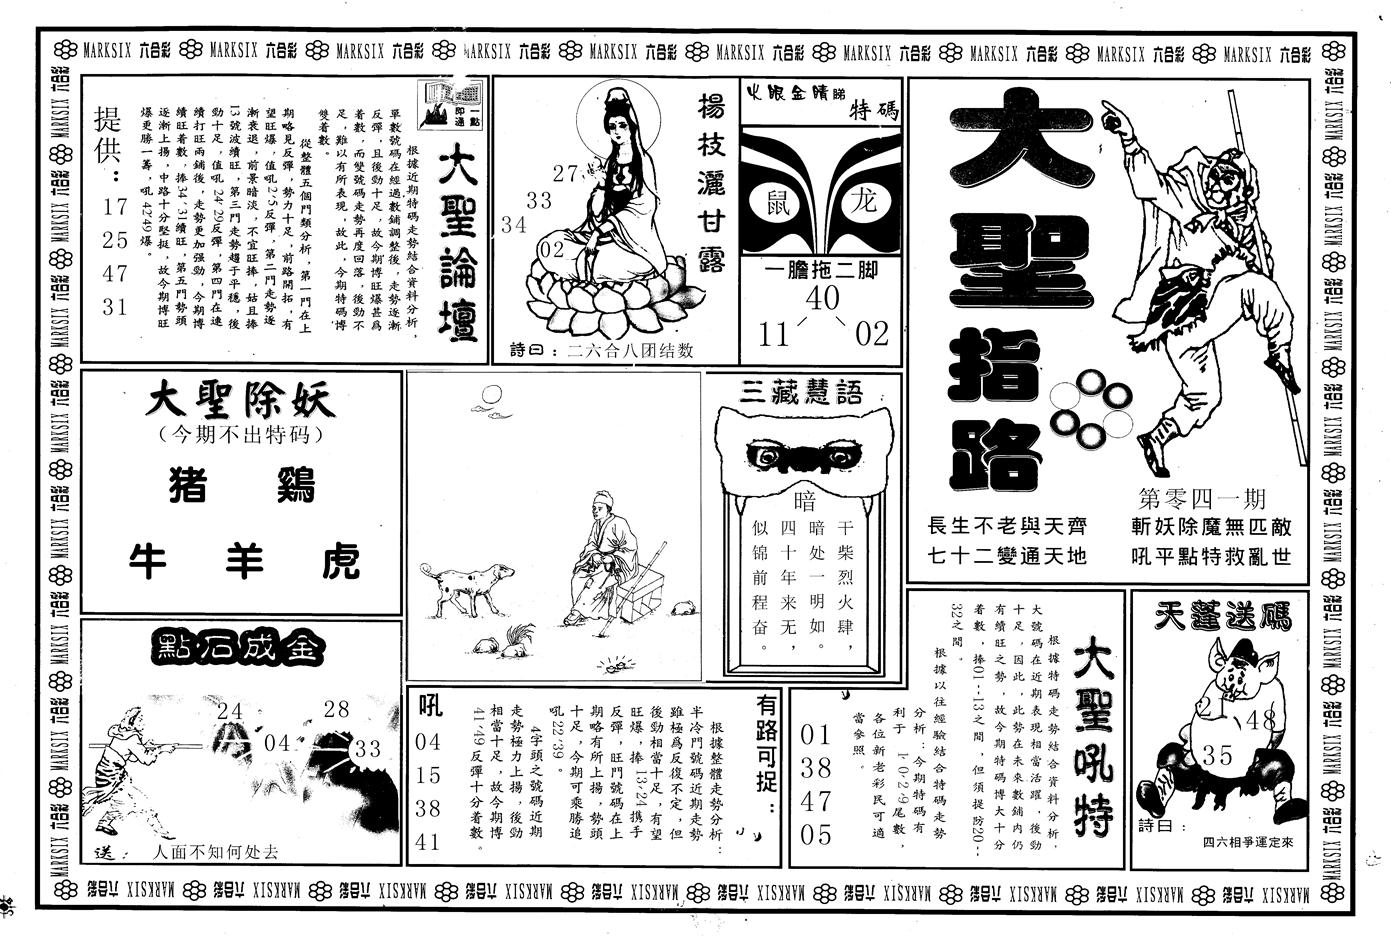 MARKSIX 六合彩 MARKSIX 六合彩 MARKSIX 六合彩 MARKSIX 六合彩 MARKSIX 六合彩 MARKSIX 六合彩 MARKSIX 六合彩 MARKSIX 六合彩 MARKSIX 六合彩 MARKSIX 六合彩
大聖指路
第零四一期
長生不老與天齊
七十二變通天地
斬妖除魔無匹敵
吼平點特救亂世
火眼金睛睇特碼
鼠 龙
一膽拖二脚
40
11 02
楊枝灑甘露
27
33
34
02
詩曰：二六合八团结数
一點即通
大聖論壇
根據近期特碼走勢結合資料分析，
單數號碼在經過數鋪調整後，走勢逐漸
反彈，且後勁十足，故今期博旺爆甚爲
着數，而雙號碼走勢再度回落，後勁不
足，難以有所表現，故此，今期特碼博
雙着數。
從整體五個門類分析，第一門在上
期略見反彈，勢力十足，前路開拓，有
望旺爆，值吼2·5反彈，第二門走勢逐
漸衰退，前景暗淡，不宜旺捧，姑且捧
13號波續旺，第三門走勢趨于平穩，後
勁十足，值吼24·29反彈，第四門在連
續打旺兩鋪後，走勢更加强勁，今期博
續旺着數，捧34·31續旺，第五門勢頭
逐漸上揚，中路十分堅挺，故今期博旺
爆更勝一籌，吼42·49爆。
提供：
17
25
47
31
大聖除妖
（今期不出特码）
猪 鷄
牛 羊 虎
三藏慧語
暗
干柴烈火肆，
暗处一明如。
四十年来无，
似锦前程奋。
點石成金
24
28
04
33
送： 人面不知何处去
有路可捉：
根據整體走勢分析：
半冷門號碼近期走勢
雖極爲反復不定，但
後勁相當十足，有望
旺爆，捧13·24携手
反彈，旺門號碼在上
期略有所上揚，勢頭
十足，今期可乘勝追
吼22·39。
4字頭之號碼近期
走勢極力上揚，後勁
相當十足，故今期博
41·49反彈十分着數。
吼
04
15
38
41
大聖吼特
根據特碼走勢結合資料分析，
大號碼在近期表現相當活躍，後勁
十足，因此，此勢在未來數鋪内仍
有續旺之勢，故今期特碼博大十分
着數，捧01--13之間，但須提防20--
32之間。
根據以往經驗結合特碼走勢
分析：今期特碼有
利于1·0·2·9尾數，
各位新老彩民可適
當參照。
01
38
47
05
天蓬送碼
48
35
詩曰：
四六相爭運定來